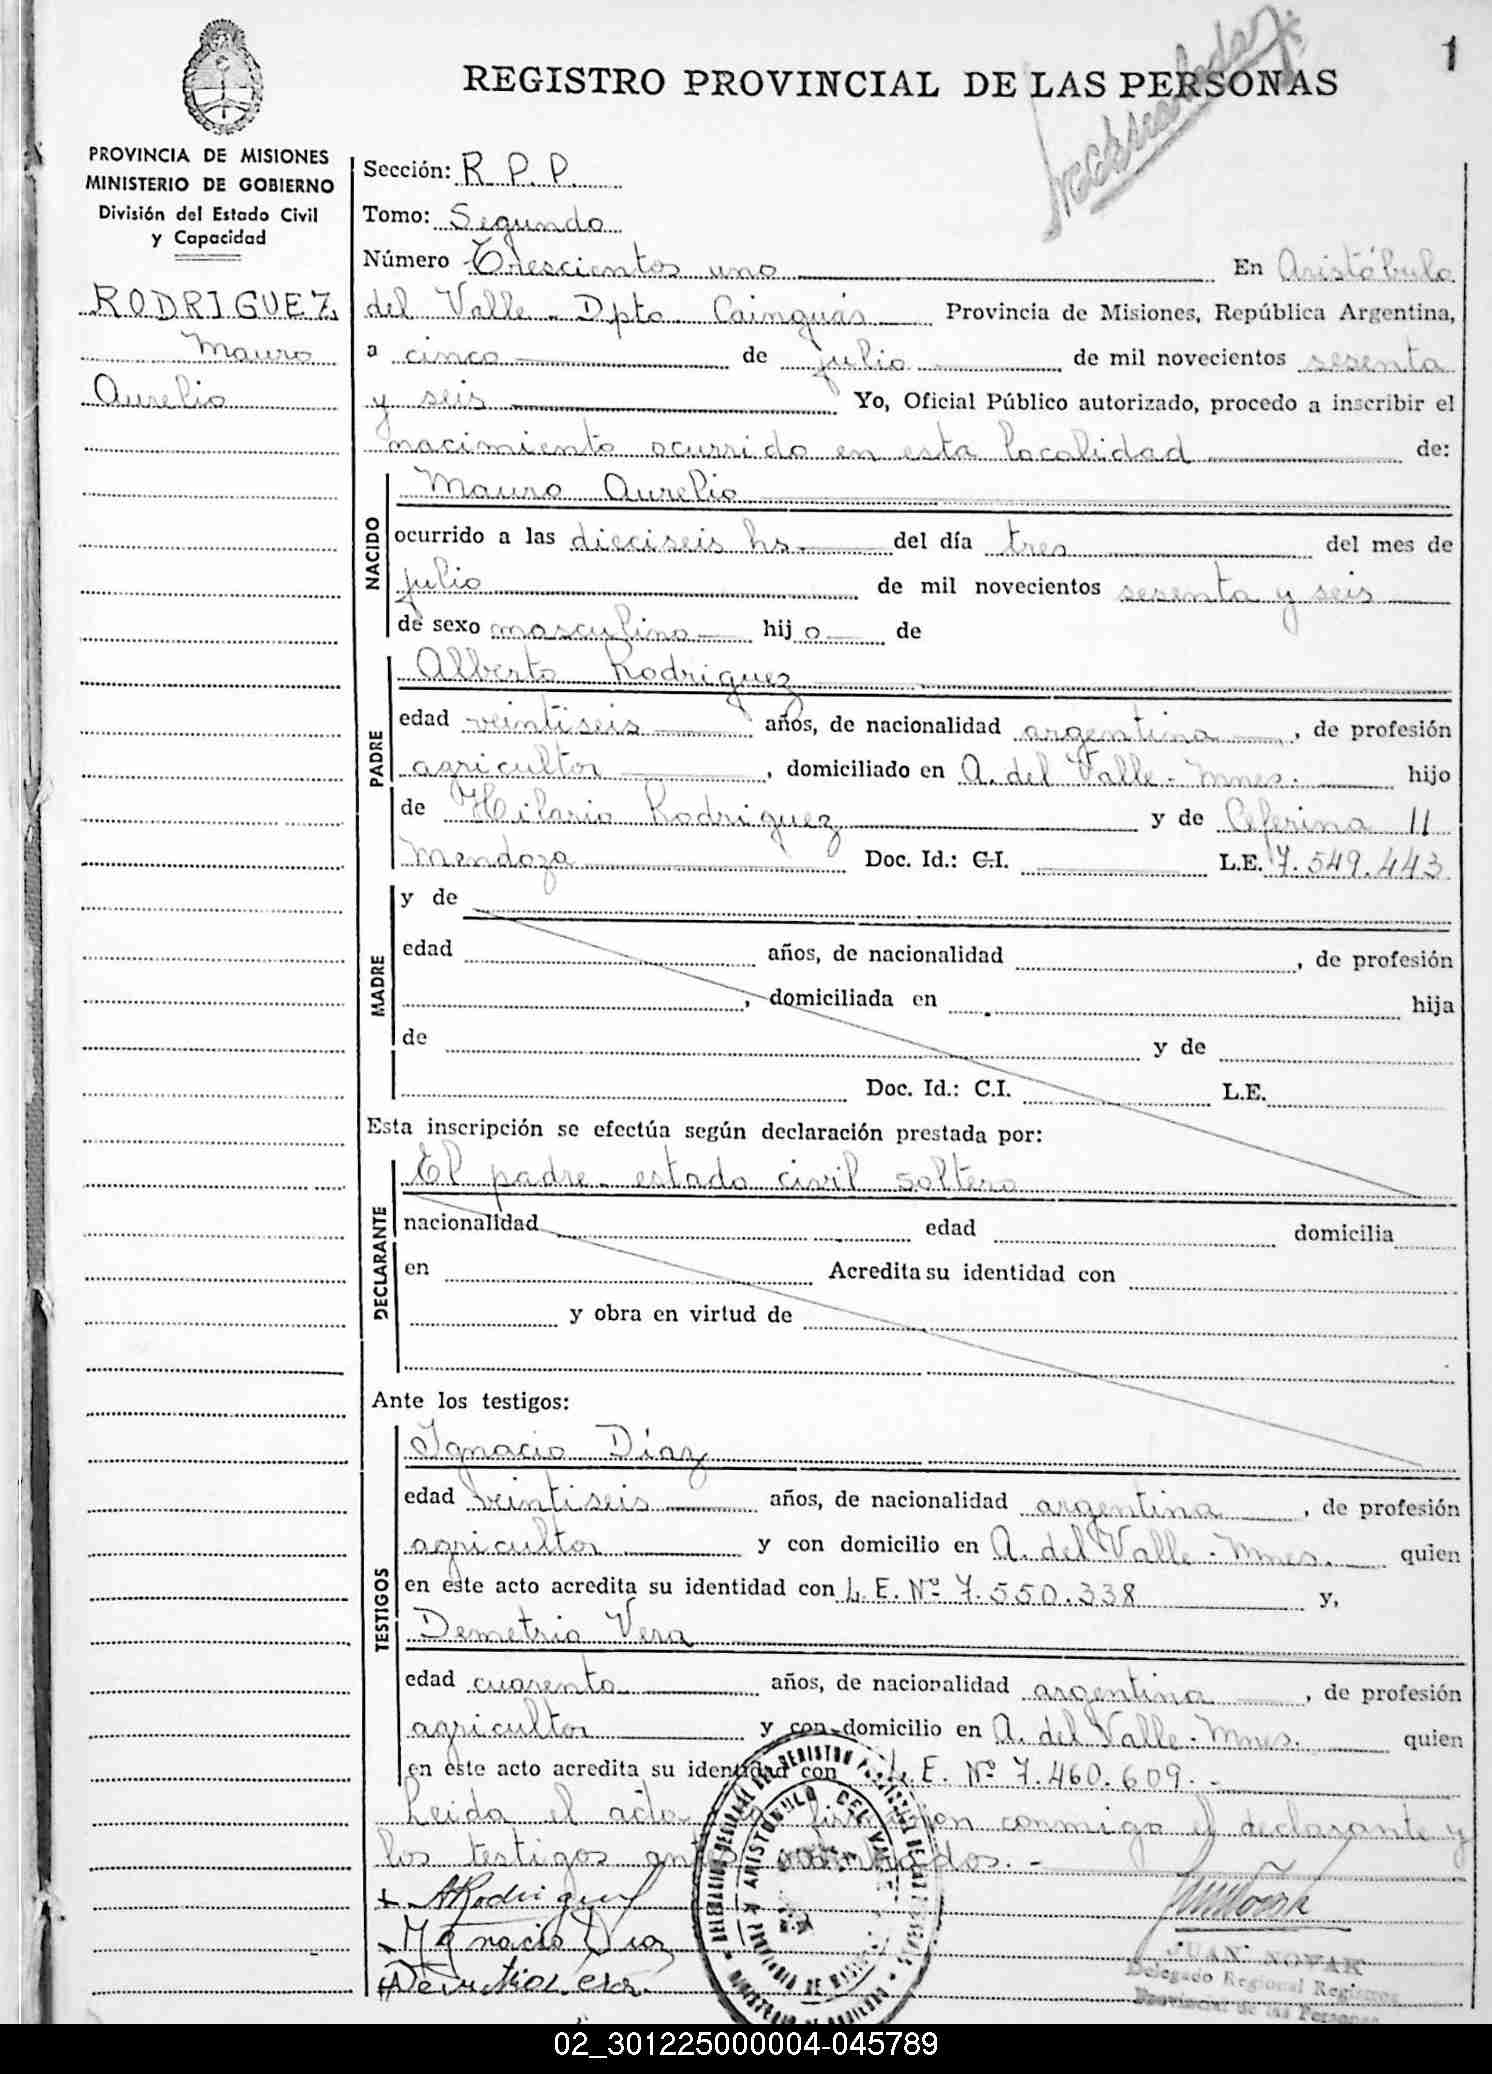 1
REGISTRO PROVINCIAL DE LAS PERSONAS
PROVINCIA DE MISIONES
MINISTERIO DE GOBIERNO
División del Estado Civil
y Capacidad
RODRIGUEZ
Mauro
Aurelio
Sección: R.P.P.
Tomo: Segundo
Número Trescientos uno En Aristóbulo
del Valle - Dpto Cainguás Provincia de Misiones, República Argentina,
a cinco de julio de mil novecientos sesenta
y seis Yo, Oficial Público autorizado, procedo a inscribir el
nacimiento ocurrido en esta localidad de:
NACIDO
Mauro Aurelio
ocurrido a las dieciseis hs. del día tres del mes de
julio de mil novecientos sesenta y seis
de sexo masculino hij o de
PADRE
Alberto Rodriguez
edad veintiseis años, de nacionalidad argentina, de profesión
agricultor, domiciliado en A. del Valle - Mnes. hijo
de Hilario Rodriguez y de Ceferina
Mendoza Doc. Id.: C.I. L.E. 7.549.443
MADRE
y de
edad años, de nacionalidad , de profesión
, domiciliada en hija
de y de
Doc. Id.: C.I. L.E.
Esta inscripción se efectúa según declaración prestada por:
DECLARANTE
El padre - estado civil soltero
nacionalidad edad domicilia
en Acredita su identidad con
y obra en virtud de
Ante los testigos:
TESTIGOS
Ignacio Díaz
edad veintiseis años, de nacionalidad argentina, de profesión
agricultor y con domicilio en A. del Valle - Mnes. quien
en este acto acredita su identidad con L.E. Nº 7.550.338 y,
Demetrio Vera
edad cuarenta años, de nacionalidad argentina, de profesión
agricultor y con domicilio en A. del Valle - Mnes. quien
en este acto acredita su identidad con L.E. Nº 7.460.609.-
Leida el acta, firmaron conmigo el declarante y
los testigos antes nombrados.-
ARodriguez
Ygnacio Diaz
Demetrio Vera
JUAN NOVAK
Delegado Regional Registro
Provincial de las Personas
ARISTOBULO DEL VALLE
PROVINCIA DE MISIONES
MINISTERIO DE GOBIERNO
02_301225000004-045789